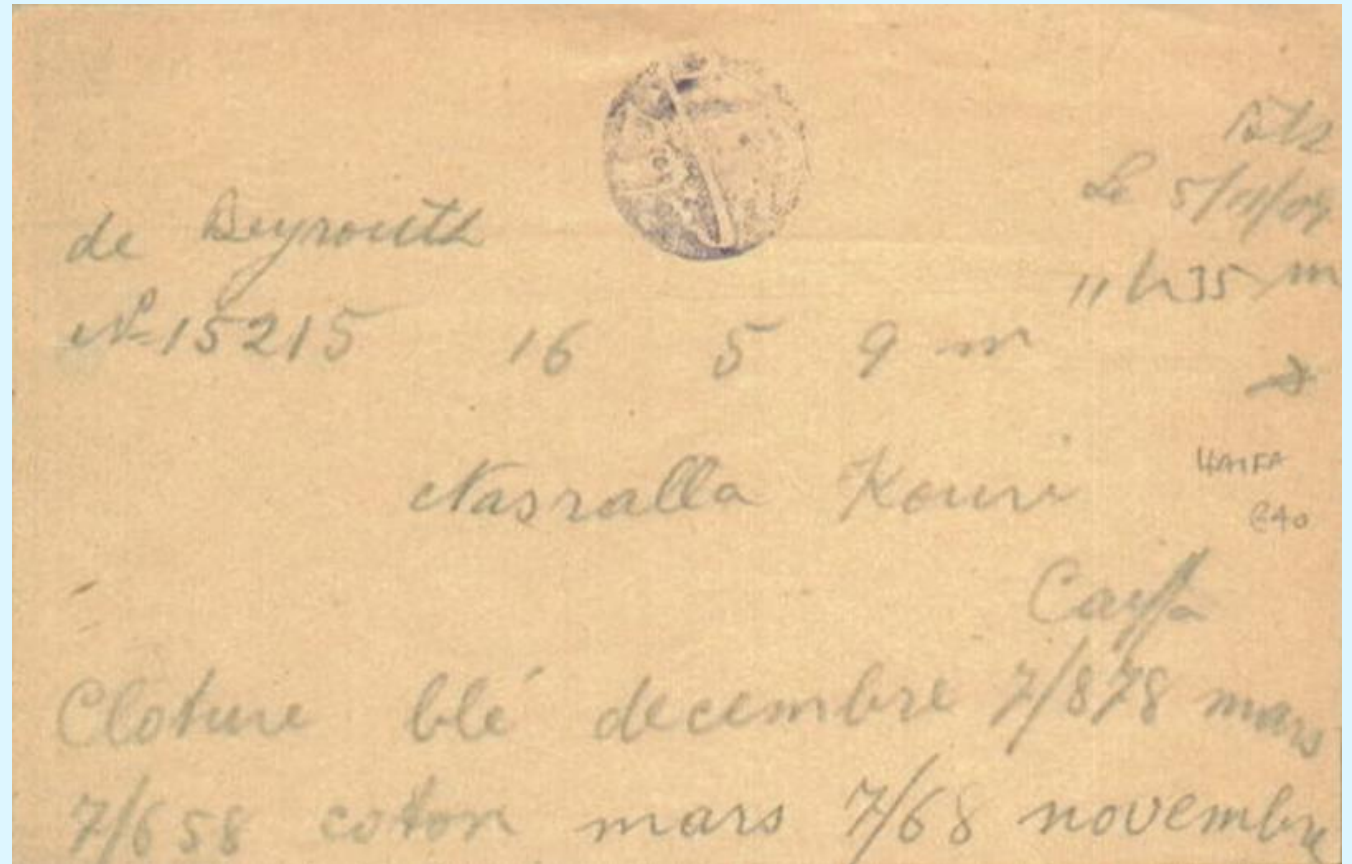 Le 5/11/09
de Beyrouth
11h35 m
No 15215 16 5 9 m
Nasralla Kouri
HAIFA
€40
Cayffa
Cloture blé decembre 7/878 mars
7/658 coton mars 7/68 novembre